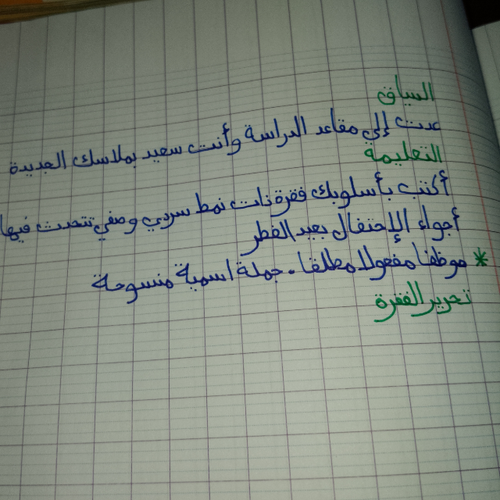 السياق
عدت إلى مقاعد الدراسة وأنت سعيد بملابسك الجديدة
التعليمة
أكتب بأسلوبك فقرة ذات نمط سردي وصفي تتحدث فيها
أجواء الإحتفال بعيد الفطر
* موظفا مفعولا مطلقا . جملة اسمية منسوخة
تحرير الفقرة